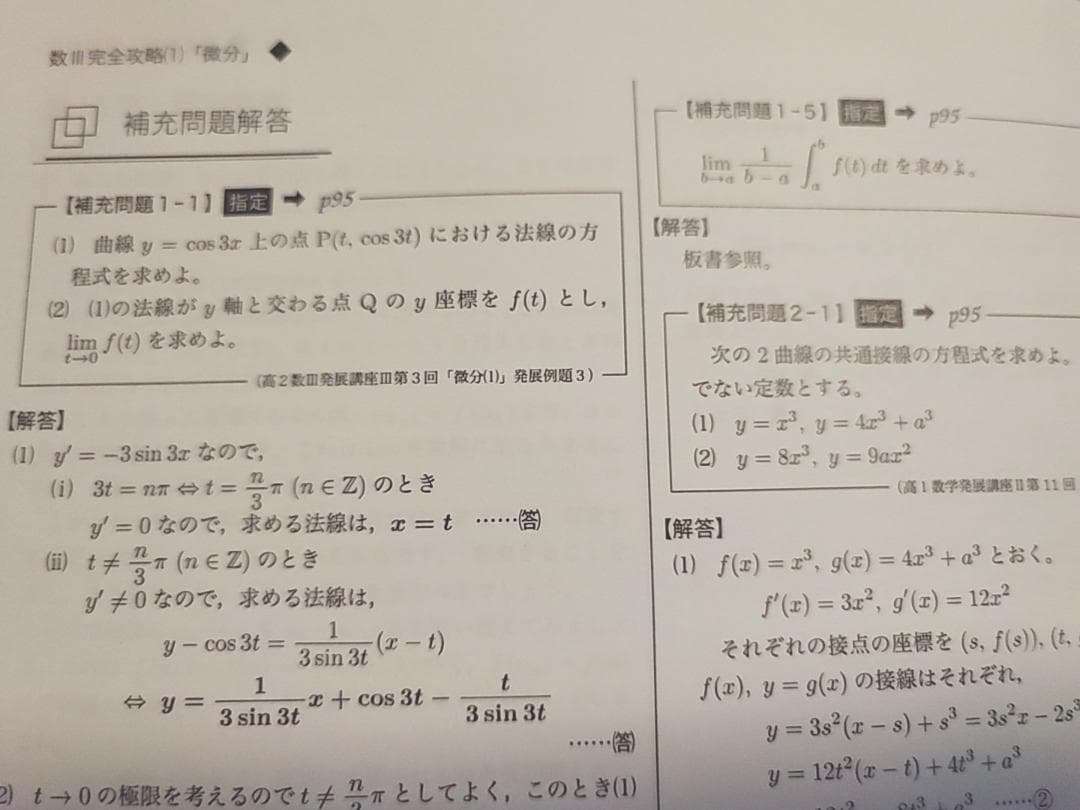 数Ⅲ完全攻略(1)「微分」◆
補充問題解答
【補充問題1-1】 指定 ➡ p95
(1) 曲線 y = cos3x 上の点 P(t, cos3t) における法線の方
程式を求めよ。
(2) (1)の法線が y 軸と交わる点 Q の y 座標を f(t) とし,
lim_{t→0} f(t) を求めよ。
(高2数Ⅲ発展講座Ⅲ第3回「微分(1)」発展例題3)
【解答】
(1) y′ = −3 sin 3x なので,
(i) 3t = nπ ⇔ t = n/3 π (n ∈ ℤ) のとき
y′ = 0 なので, 求める法線は, x = t ……(答)
(ii) t ≠ n/3 π (n ∈ ℤ) のとき
y′ ≠ 0 なので, 求める法線は,
y − cos 3t = 1/(3 sin 3t) (x − t)
⇔ y = 1/(3 sin 3t) x + cos 3t − t/(3 sin 3t)
……(答)
2) t → 0 の極限を考えるので t ≠ n/3 π としてよく, このとき(1)
【補充問題1-5】 指定 ➡ p95
lim_{b→a} 1/(b − a) ∫_a^b f(t) dt を求めよ。
【解答】
板書参照。
【補充問題2-1】 指定 ➡ p95
次の2曲線の共通接線の方程式を求めよ。
でない定数とする。
(1) y = x³, y = 4x³ + a³
(2) y = 8x³, y = 9ax²
(高1数学発展講座Ⅱ第11回
【解答】
(1) f(x) = x³, g(x) = 4x³ + a³ とおく。
f′(x) = 3x², g′(x) = 12x²
それぞれの接点の座標を (s, f(s)), (t,
f(x), y = g(x) の接線はそれぞれ,
y = 3s²(x − s) + s³ = 3s²x − 2s³
y = 12t²(x − t) + 4t³ + a³
……②